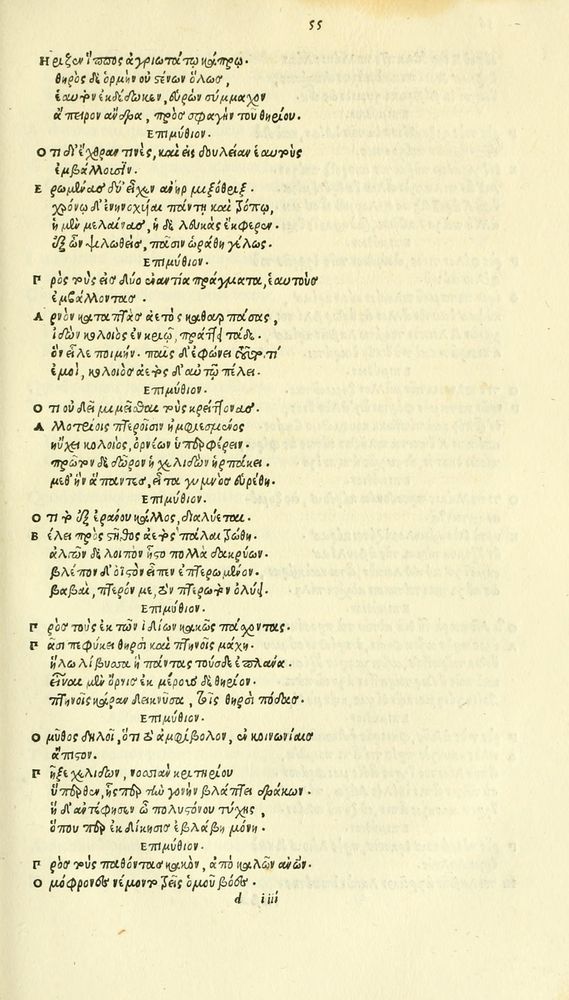 55
Ηριζεν ἵππος ἀγριωτάτῳ κάπρῳ.
θηρὸς δὲ ὁρμὴν οὐ στένων ὅλως,
ἑαυτὸν ἐκδέδωκεν, εὑρὼν σύμμαχον
ἄπειρον ἄνδρα, πρὸς σφαγὴν τοῦ θηρίου.
Επιμύθιον.
Οτι δι' ἔχθραν τινὲς, καὶ εἰς δουλείαν ἑαυτοὺς
ἐμβάλλουσιν.
Ερωμένας δύ' εἶχεν ἀνὴρ μιξόθριξ.
χρόνῳ δ' ἐνηνοχυῖαι πάντῃ καὶ τόπῳ,
ἡ μὲν μελαίνας, ἡ δὲ λευκὰς ἐκφέρειν.
ἐξ ὧν ψιλωθεὶς, πᾶσιν ὡράθη γέλως.
Επιμύθιον.
Πρὸς τοὺς εἰς δύο ἐναντία πράγματα, ἑαυτοὺς
ἐμβάλλοντας.
Αρνὸν καταπτὰς ἀετὸς καθαρπάσας,
ἰδὼν κολοιὸς ἐν κριῷ, πράττει τάδε.
ὃν εἷλε ποιμήν. παῖς δ' ἐφώνει
ἐμοὶ, κολοιὸς ἀετὸς δ' αὑτῷ πέλει.
Επιμύθιον.
Οτι οὐ δεῖ μιμεῖσθαι τοὺς κρείττονας.
Αλλοτρίοις πτεροῖσιν ἠμφιεσμένος
ηὔχει κολοιὸς, ὀρνέων ὑπερφέρειν.
πρῶτον δὲ δῶρον ἡ χελιδὼν ἡρπάκει.
μεθ' ἣν ἅπαντες, εἶτα γυμνὸς εὑρέθη.
Επιμύθιον.
Οτι τὸ ἐξ ἐράνου κάλλος, διαλύεται.
Βέλει πρὸς στῆθος ἀετὸς πάλαι
ἀλγῶν δὲ λοιπὸν ἧστο πολλὰ δακρύων.
βλέπων δ' ὀϊστὸν εἶπεν ἐπτερωμένον.
βαβαὶ, πτερόν με, τὸν πτερωτὸν ὀλύει.
Επιμύθιον.
Πρὸς τοὺς ἐκ τῶν ἰδίων κακῶς πάσχοντας.
Πᾶσι πεφύκει θηρσὶ καὶ πτηνοῖς μάχη.
ἥλω λίβυσσα ἣ πάντας τούσδε ἐπλάνα.
εἶναι μὲν ὄρνις ἐκ μέρους δὲ θηρίον.
πτηνοῖς κάραν δεικνῦσα, τοῖς θηρσὶ πόδας.
Επιμύθιον.
Ο μῦθος δηλοῖ, ὅτι τὸ ἀμφίβολον, ἐν κοινωνίαις
ἄπιστον.
Πῆξε χελιδὼν, νοσσιὰν κριτηρίου
ὕπερθεν, ἧσπερ τὴν γονὴν βλάπτει δράκων.
ἡ δ' ἀντέφησεν ὦ πολυστόνου τύχης,
ὅπου περ ἐκδίκησις ἐβλάβη μόνη.
Επιμύθιον.
Πρὸς τοὺς παθόντας κακὸν, ἀπὸ καλῶν ἀνῶν.
Ομόφρονος νέμοντο τρεῖς ὁμοῦ βόες.
d iiii